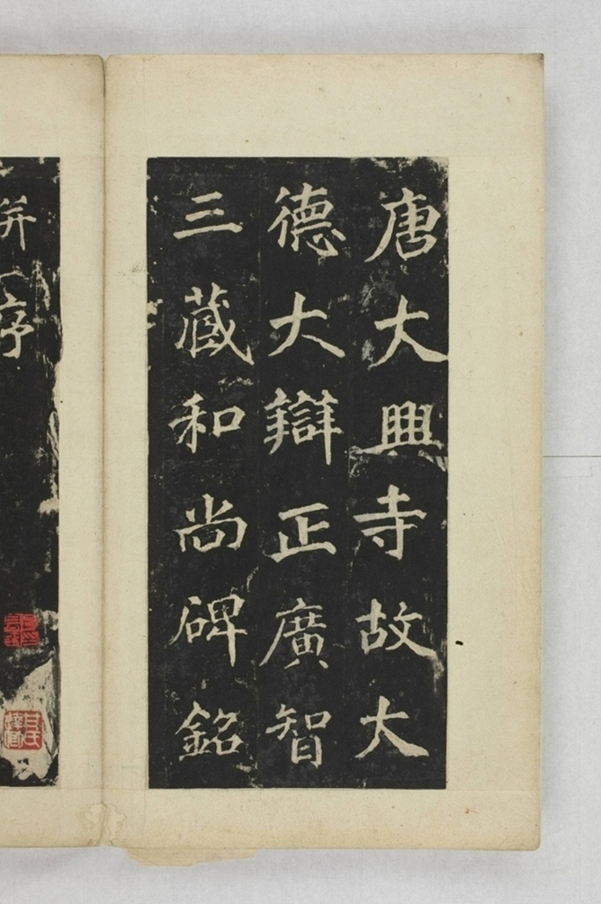 唐大興寺故大
德大辯正廣智
三藏和尚碑銘
并序